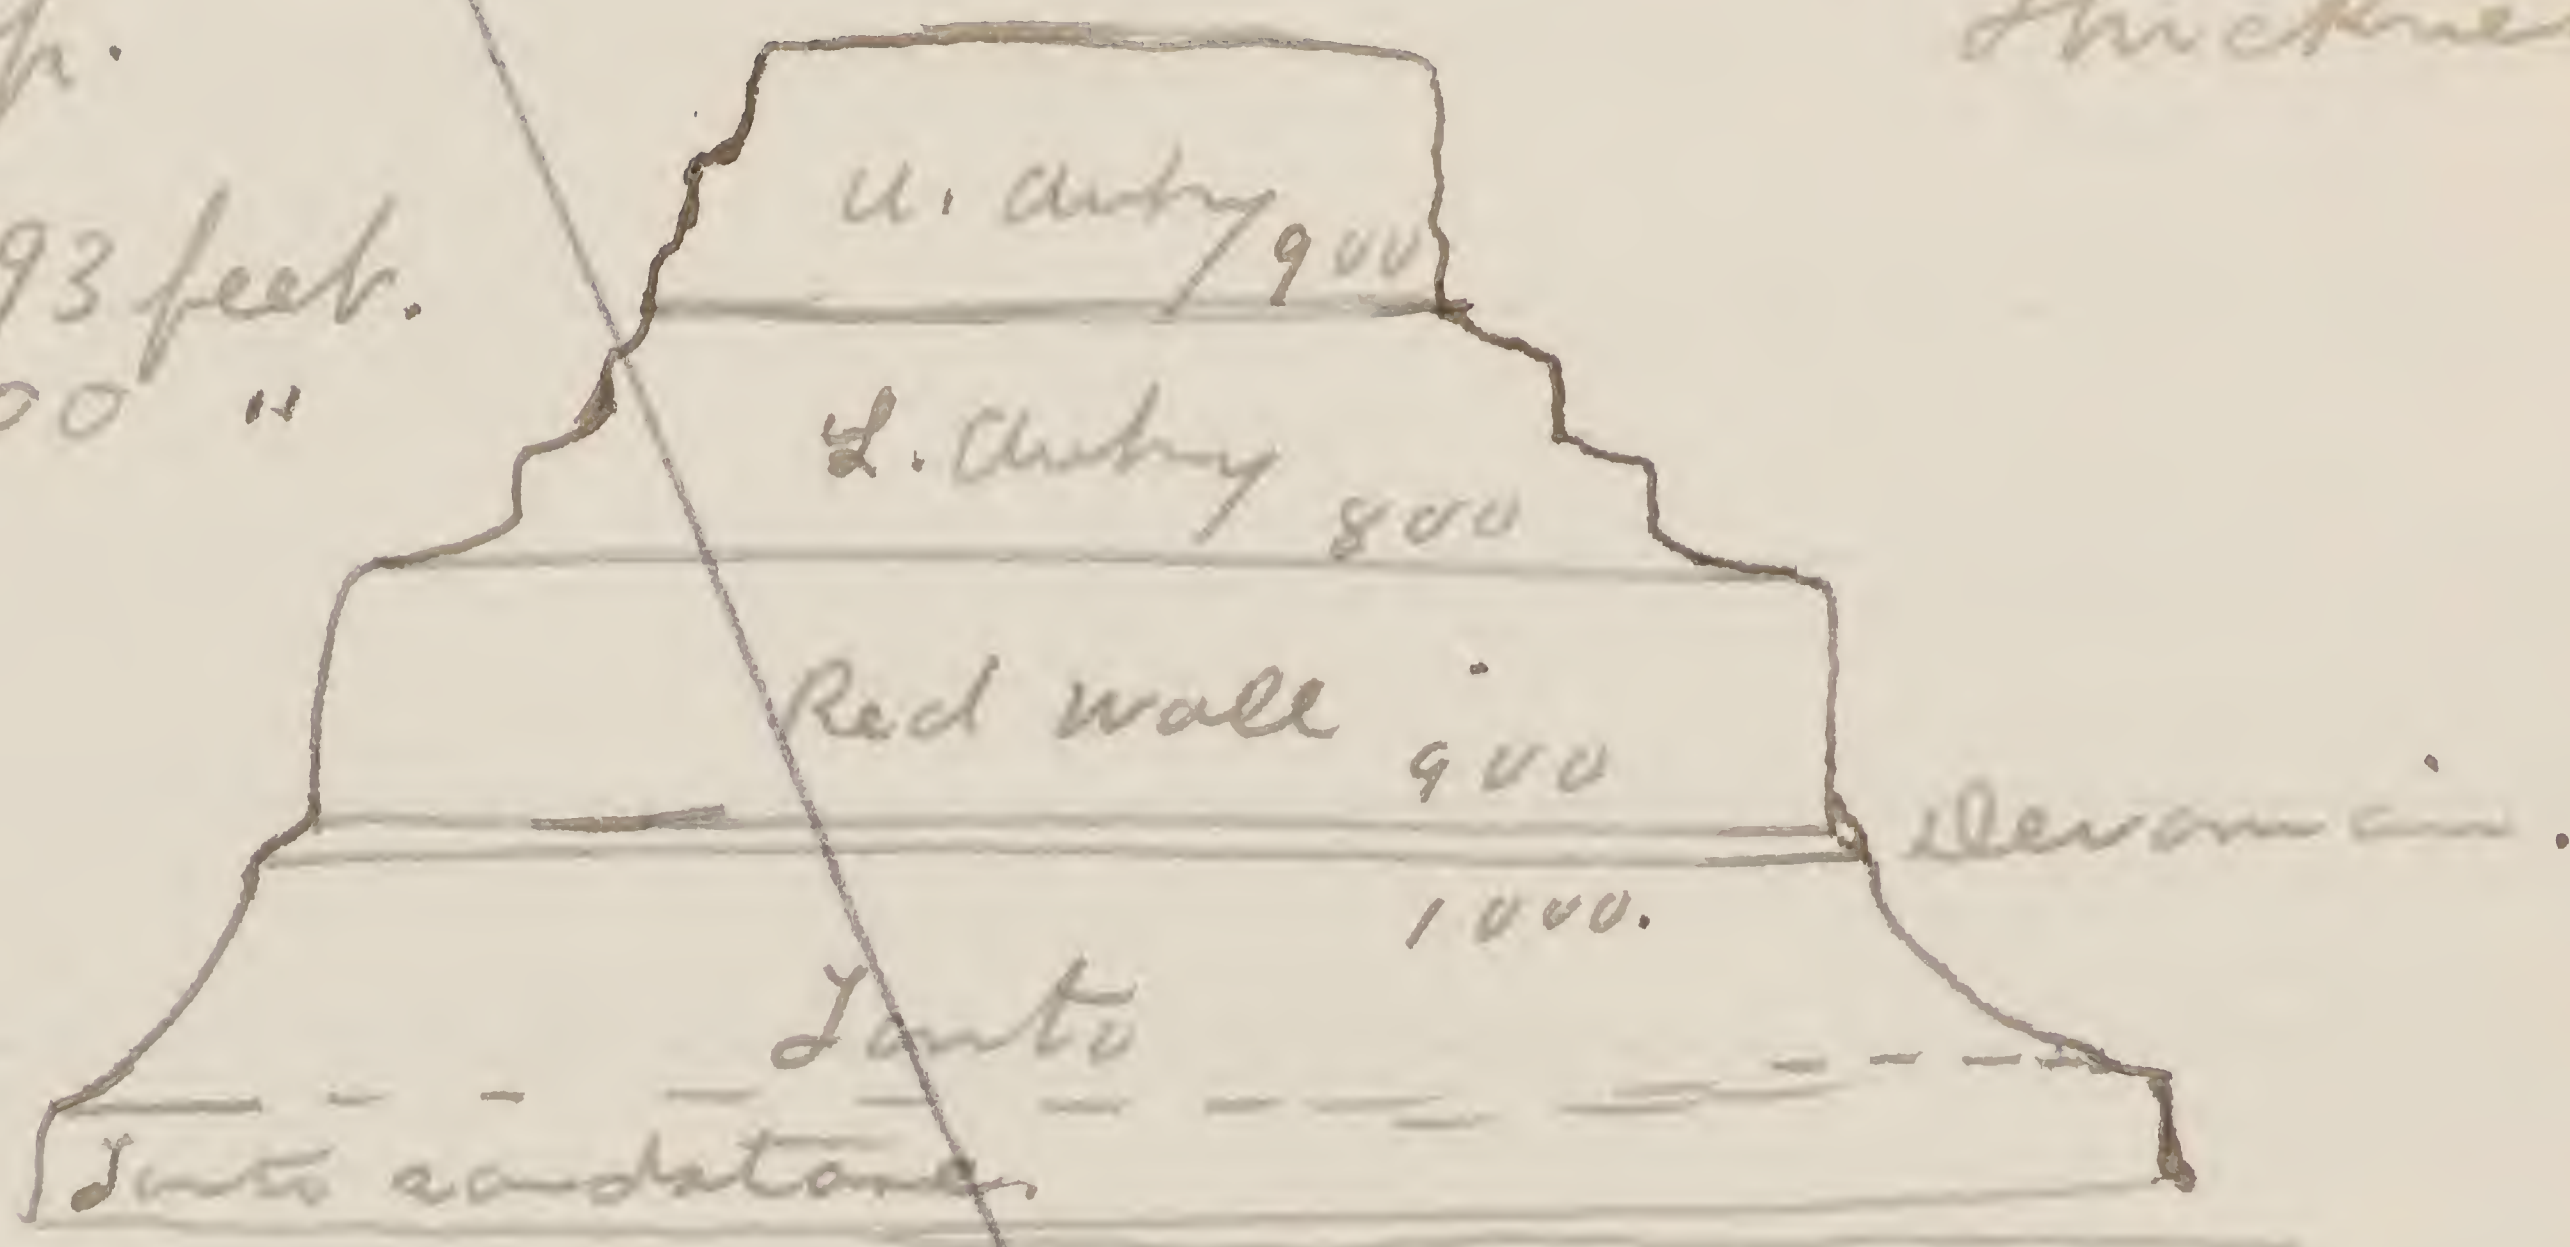 thickne
U. Aubry
900
93 feet.
00 "
L. Aubry
800
Red wall
900
Devonian.
1000.
Tonto
Tonto sandstone